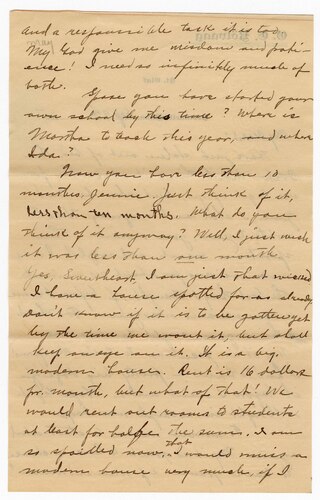 and a responsible task it is too
My God give me wisdom and pati-
ence! I need so infinitely much of
both.
Guess you have started your
own school by this time? Where is
Martha to teach this year, and where
Ida?
Now you have less than 10
months, Jennie. Just think of it,
less than ten months. What do you
think of it anyway? Well, I just wish
it was less than one month.
Yes, Sweetheart, I am just that wicked
I have a house spotted for us already
Don't know if it is to be gotten yet
by the time we want it, but shall
keep an eye on it. It is a big,
modern house. Rent is 16 dollars
for month, but what of that! We
would rent out rooms to students
at least for half the sum. I am
so spoiled now, that I would miss a
modern house very much, if I